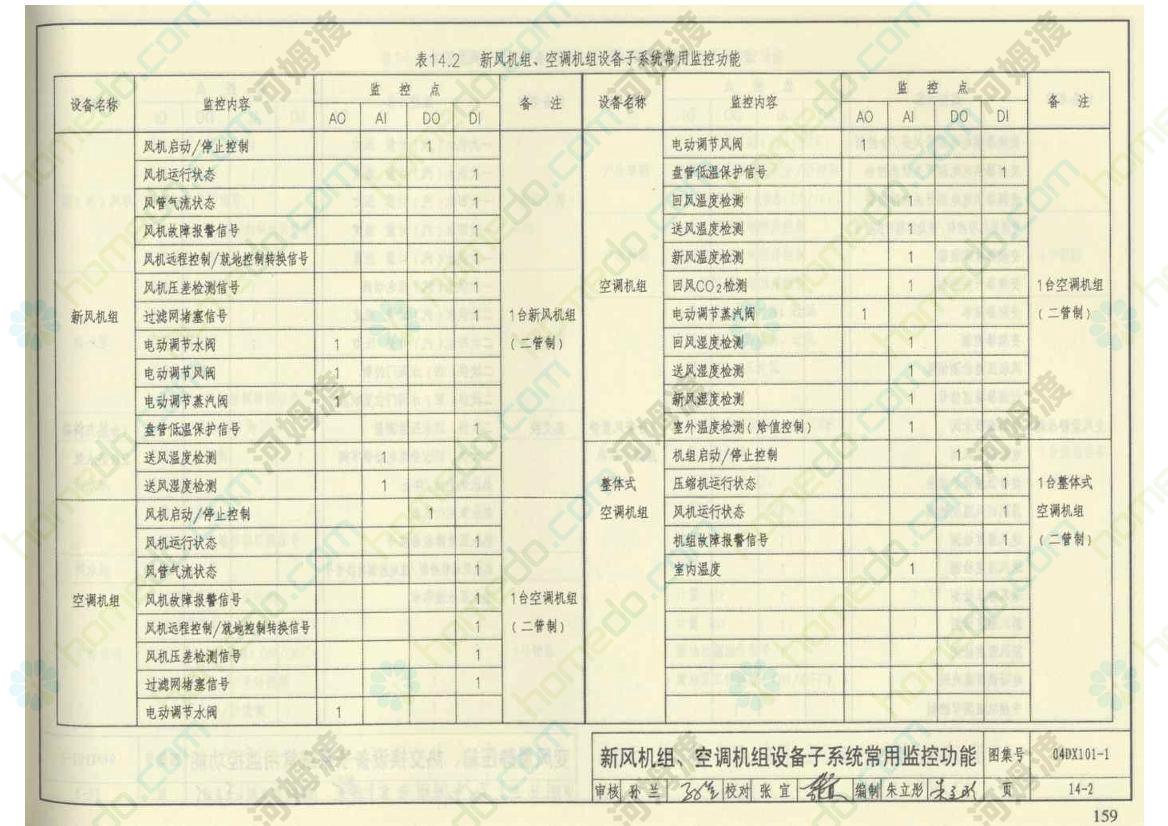 表14.2 新风机组、空调机组设备子系统常用监控功能
设备名称 监控内容 监控点 备注
AO AI DO DI
新风机组 1台新风机组（二管制）
风机启动/停止控制 1
风机运行状态 1
风管气流状态 1
风机故障报警信号 1
风机远程控制/就地控制转换信号 1
风机压差检测信号 1
过滤网堵塞信号 1
电动调节水阀 1
电动调节风阀 1
电动调节蒸汽阀 1
盘管低温保护信号 1
送风温度检测 1
送风湿度检测 1
空调机组 1台空调机组（二管制）
风机启动/停止控制 1
风机运行状态 1
风管气流状态 1
风机故障报警信号 1
风机远程控制/就地控制转换信号 1
风机压差检测信号 1
过滤网堵塞信号 1
电动调节水阀 1
设备名称 监控内容 监控点 备注
AO AI DO DI
空调机组 1台空调机组（二管制）
电动调节风阀 1
盘管低温保护信号 1
回风温度检测 1
送风温度检测 1
新风温度检测 1
回风CO2检测 1
电动调节蒸汽阀 1
回风湿度检测 1
送风湿度检测 1
新风湿度检测 1
室外温度检测(焓值控制) 1
整体式空调机组 1台整体式空调机组（二管制）
机组启动/停止控制 1
压缩机运行状态 1
风机运行状态 1
机组故障报警信号 1
室内温度 1
新风机组、空调机组设备子系统常用监控功能 图集号 04DX101-1
审核 孙兰 校对 张宜 编制 朱立彤 页 14-2
159
homedo.com 河姆渡